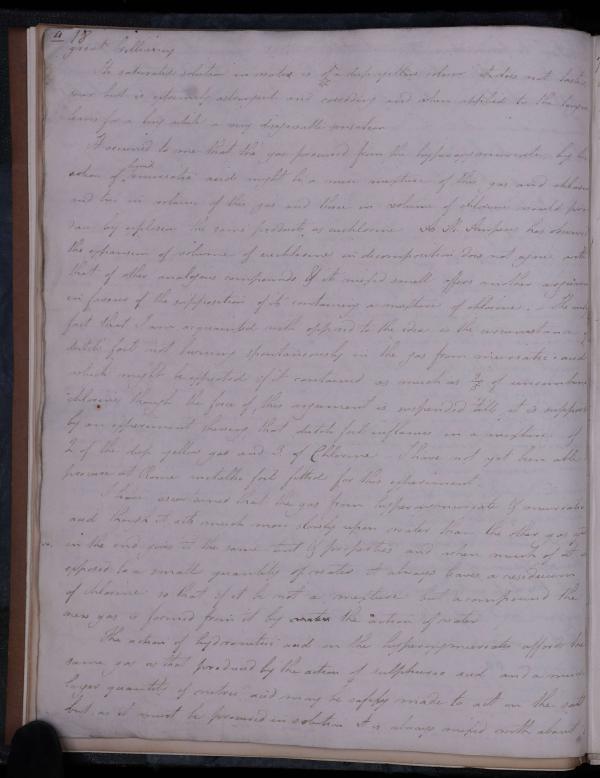 a 18
great brilliancy
Its saturated solution in water is of a deep yellow colour It does not taste
sour but is extremely astringent and corroding and when applied to the tongue
leaves for a long while a very disagreeable sensation
It occurred to me that the gas procured from the hyperoxymuriate by the
action of muriatic acid might be a mere mixture of this gas and chlorine
and in volume of this gas and three in volume of chlorine would pro
duce by explosion the same products as euchlorine As M. Ampere has observed
the expansion of volume of euchlorine in decomposition does not agree with
that of other analogous compounds & its mixed smell offers another argument
in favour of the supposition of its containing a mixture of chlorine. The only
fact that I am acquainted with opposed to the idea is the circumstance of
dutch foil not burning spontaneously in the gas from muriatic acid
which might be expected if it contained as much as 3/5 of uncombined
chlorine though the force of this argument is suspended till it is supported
by an experiment shewing that dutch foil inflames in a mixture of
2 of the deep yellow gas and 3 of Chlorine I have not yet been able
procure at Rome metallic foil fitted for this experiment
I have ascertained that the gas from hyperoxymuriate & muriatic
acid though it acts much more slowly upon water than the other gas yet
in the end gives it the same tint & properties and when much of it is
exposed to a small quantity of water it always leaves a residuum
of chlorine so that if it be not a mixture but a compound the
new gas is formed from it by water the action of water
The action of hydronitric acid on the hyperoxymuriates affords the
same gas as that produced by the action of sulphuric acid and a much
larger quantity of nitric acid may be safely made to act on the salt
but as it must be procured in solution it is always mixed with about